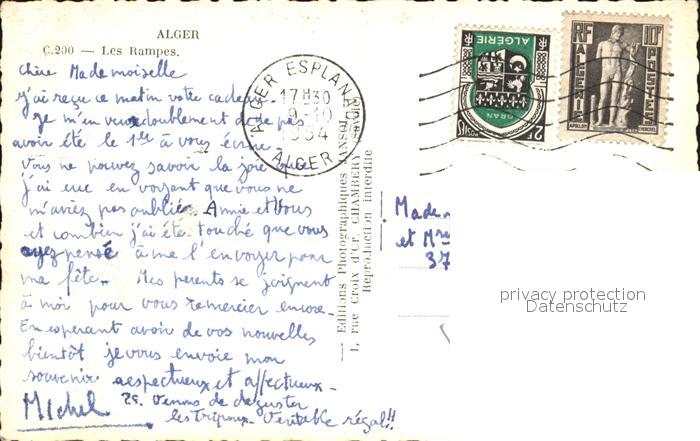 ALGER
C.200 — Les Rampes.
Chère Mademoiselle
j'ai reçu ce matin votre cadeau.
Je m'en veux doublement de ne pas
avoir été le 1er à vous écrire.
Vous ne pouvez savoir la joie que
j'ai eue en voyant que vous ne
m'aviez pas oublié. Annie et Vous
et combien j'ai été touché que vous
ayez pensé à me l'envoyer pour
ma fête. Mes parents se joignent
à moi pour vous remercier encore.
En esperant avoir de vos nouvelles
bientôt je vous envoie mon
souvenir respectueux et affectueux.
Michel
PS. Venons de déguster
les Tripoux. Véritable régal!!
Editions Photographiques JANSOL
1, rue Croix d'Or, CHAMBERY
Reproduction interdite
ALGER ESPLANADE
17H30
9-10
1954
ALGER
ALGERIE
ORAN
2F
POSTES
RF
10F
ALGERIE
POSTES
Madem
et Mr
37
privacy protection
Datenschutz